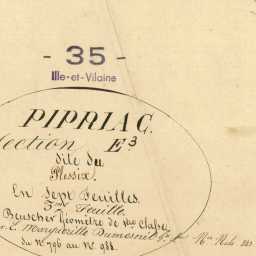 - 35 -
Ille-et-Vilaine
PIPRIAC.
ection E³
dite du
Plessix.
En Sept Feuilles.
3me Feuille
Beuscher Géomètre de 1ère Classe
Marguerite Dumesnil
du N° 796 au N° 988.